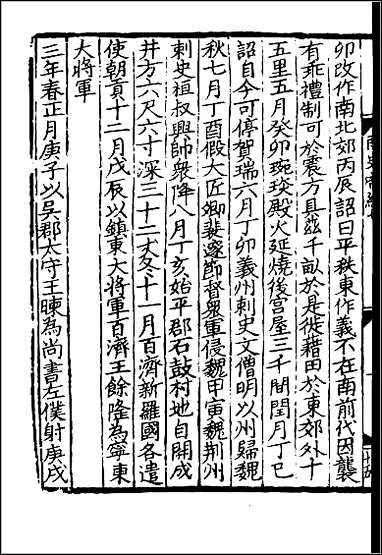 卯改作南北郊丙辰詔曰平秩東作義不在南前代因襲
有乖禮制可於震方具茲千畝於是徙藉田於東郊外十
五里五月癸卯琬琰殿火延燒後宮屋三千間閏月丁巳
詔自今可停賀瑞六月丁卯義州刺史文僧明以州歸魏
秋七月丁酉假大匠卿裴邃節督衆軍侵魏甲寅魏荊州
刺史祖叔興帥衆降八月丁亥始平郡石鼓村地自開成
井方六尺六寸深三十二丈冬十一月百濟新羅國各遣
使朝貢十二月戊辰以鎮東大將軍百濟王餘隆為寧東
大將軍
三年春正月庚子以吳郡太守王暕為尚書左僕射庚戌